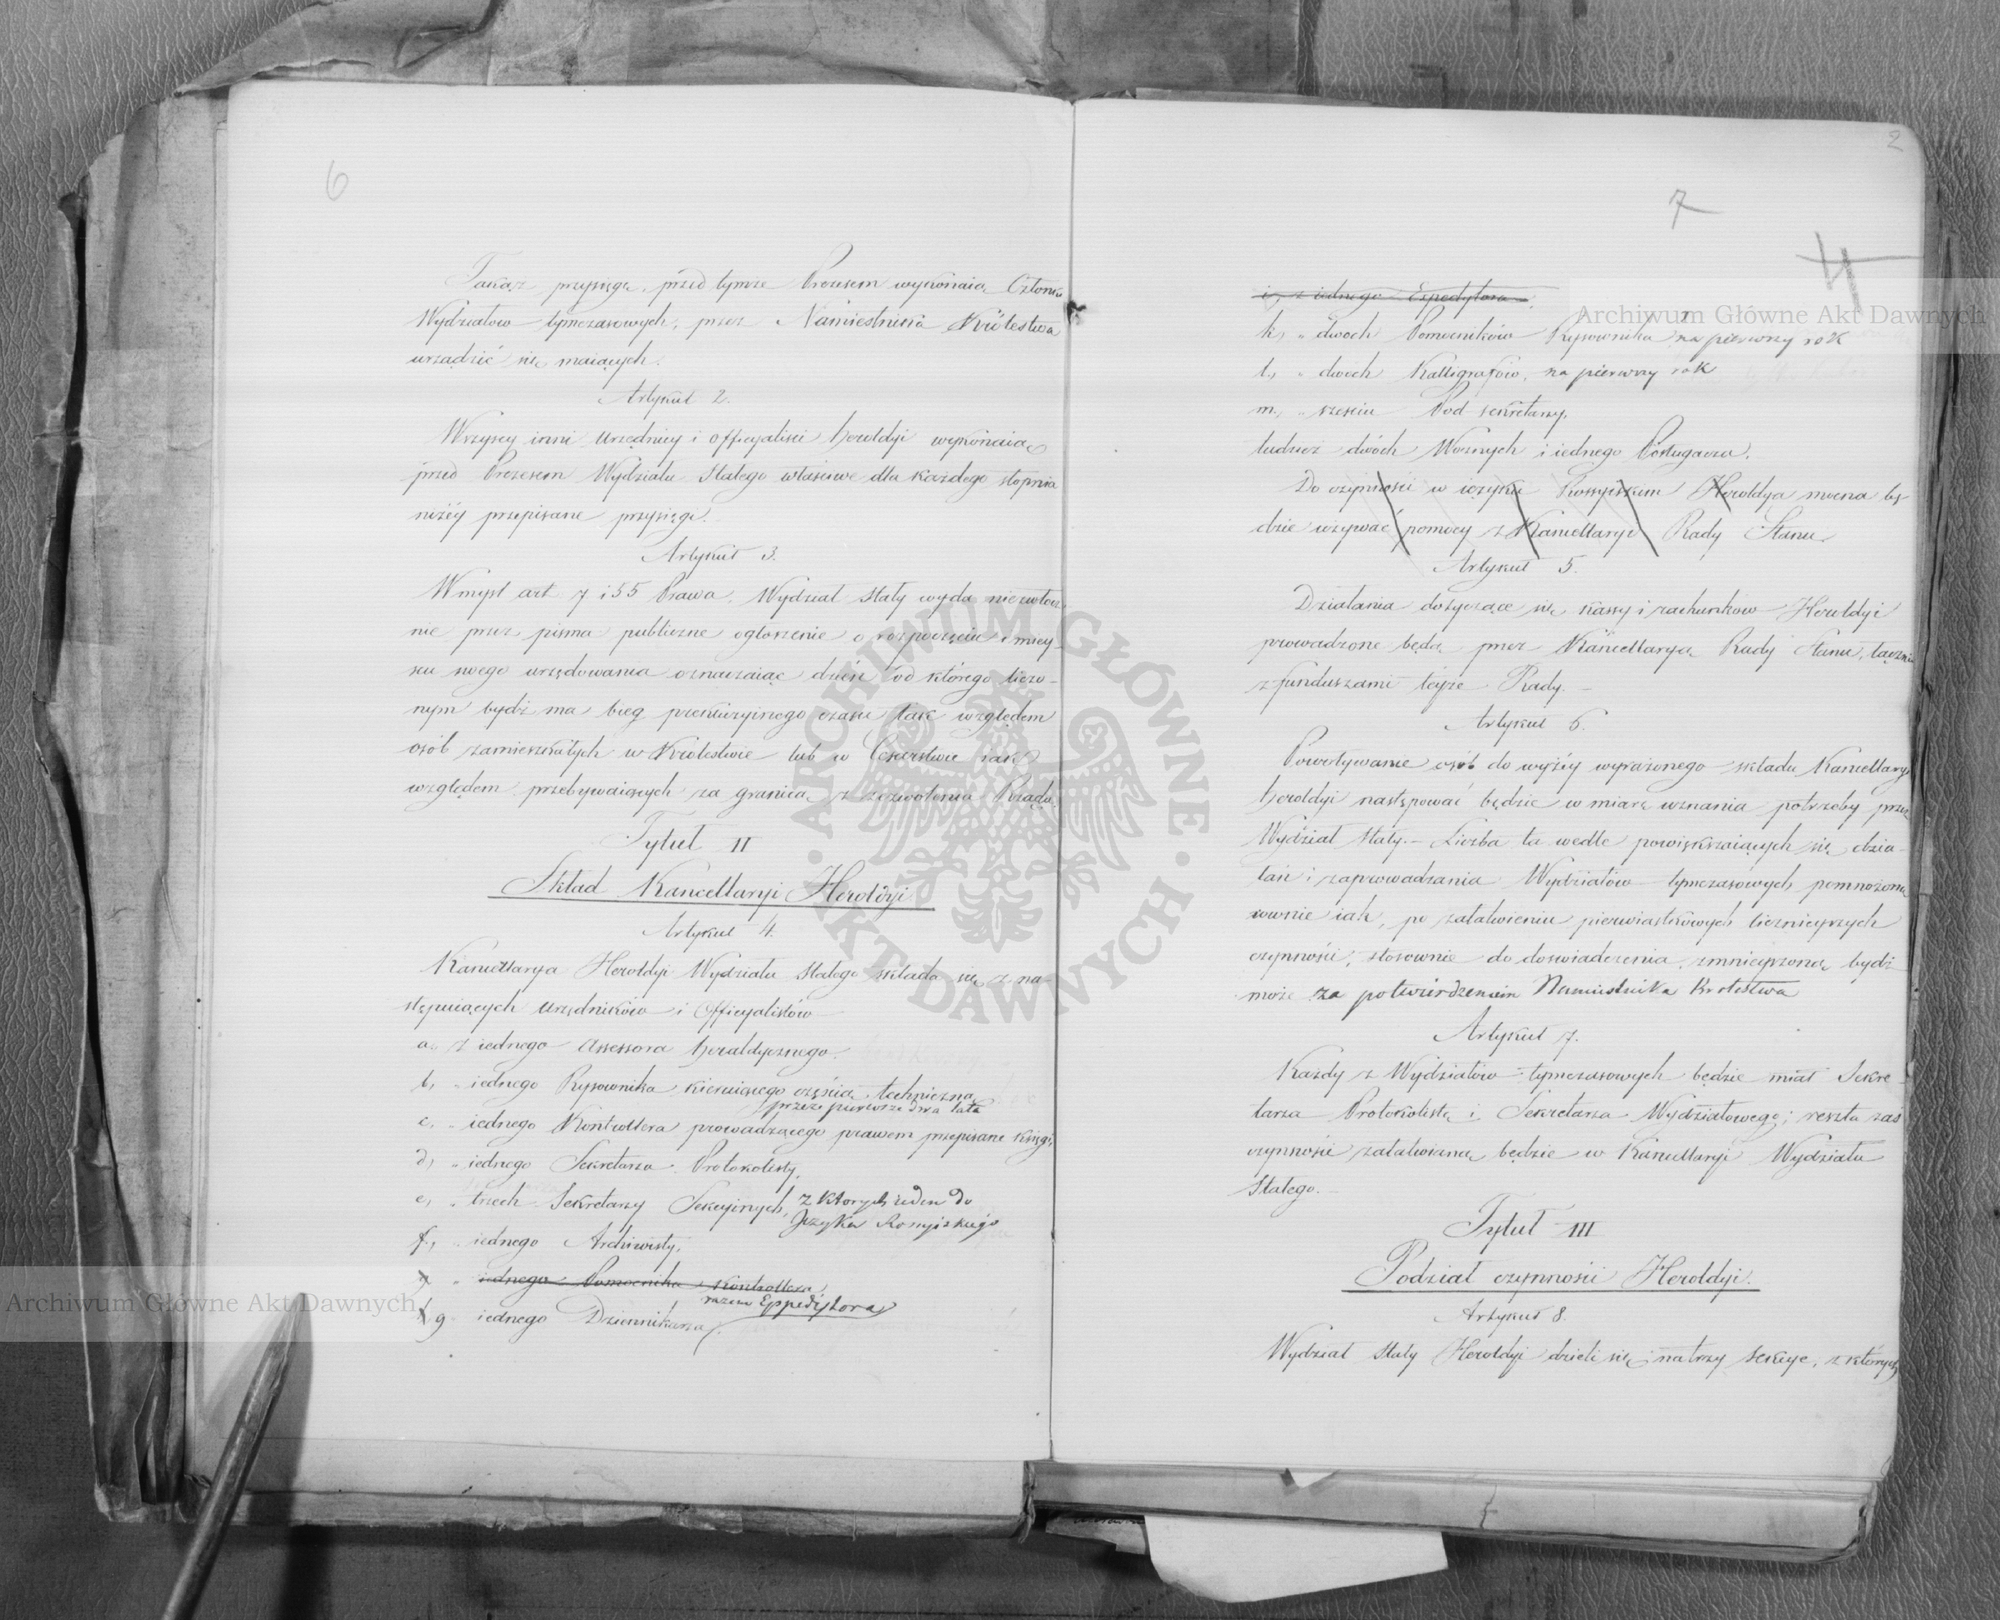 6
Takąż przysięgę, przed tymże Prezesem wykonaią Członki
Wydziałow tymczasowych, przez Namiestnika Królestwa
urządzić się maiących.
Artykuł 2.
Wszyscy inni Urzędnicy i officyaliści Heroldyi wykonaią
przed Prezesem Wydziału Stałego właściwe dla każdego stopnia
niżéy przepisane przysięgi.
Artykuł 3.
W myśl art 7 i 55 Prawa, Wydział Stały wyda niezwłocz
nie przez pisma publiczne ogłoszenie o rozpoczęciu i miey-
scu swego urzędowania oznaczaiąc dzień od którego liczo-
nym bydź ma bieg prekluzyinego czasu tak względem
osób zamieszkałych w Królestwie lub w Cesarstwie iak
względem przebywaiących za granicą z zezwolenia Rządu.
Tytuł II
Skład Kancellaryi Heroldyi
Artykuł 4.
Kancellarya Heroldyi Wydziału Stałego składa się z na-
stępuiących Urzędników i Officyalistów
a. z iednego Assessora Heraldycznego.
b, " iednego Rysownika kieruiącego częścią techniczną
przez pierwsze dwa lata
c, " iednego Kontrollera prowadzącego prawem przepisane księgi,
d, " iednego Sekretarza Protokolisty,
e, " trzech Sekretarzy Sekcyinych, z ktorych ieden do
Języka Rossyiskiego
f, " iednego Archiwisty,
g " iednego Pomocnika Kontrollera
razem Expedytora
g iednego Dziennikarza
2
7
4
i, z iednego Expedytora
k, " dwoch Pomocników Rysownika na pierwszy rok
l, " dwoch Kalligrafów, na pierwszy rok
m, " sześciu Pod sekretarzy,
tudzież dwóch Woźnych i iednego Posługacza.
Do czynności w ięzyku Rossyiskim Heroldya można bę-
dzie używać pomocy z Kancellaryi Rady Stanu
Artykuł 5.
Działania dotyczące się kassy i rachunkow Heroldyi
prowadzone będą przez Kancellaryą Rady Stanu, łącznie
z funduszami teyże Rady.
Artykuł 6.
Powoływanie osób do wyżéy wyrażonego składu Kancellaryi
Heroldyi następować będzie w miarę uznania potrzeby przez
Wydział Stały. - Liczba ta wedle powiększaiących się dzia-
łań i zaprowadzania Wydziałów tymczasowych pomnożoną
rownie iak, po załatwieniu pierwiastkowych licznieyszych
czynności, stosownie do doświadczenia, zmnieyszoną bydź
może za potwierdzeniem Namiestnika Krolestwa
Artykuł 7.
Każdy z Wydziałów tymczasowych będzie miał Sekre-
tarza Protokolistę i Sekretarza Wydziałowego; reszta zas
czynności załatwianą będzie w Kancellaryi Wydziału
Stałego.
Tytuł III
Podział czynności Heroldyi.
Artykuł 8.
Wydział Stały Heroldyi dzieli się na trzy sekcye, z których
Archiwum Główne Akt Dawnych
Archiwum Główne Akt Dawnych
ARCHIWUM GŁÓWNE · AKT DAWNYCH ·